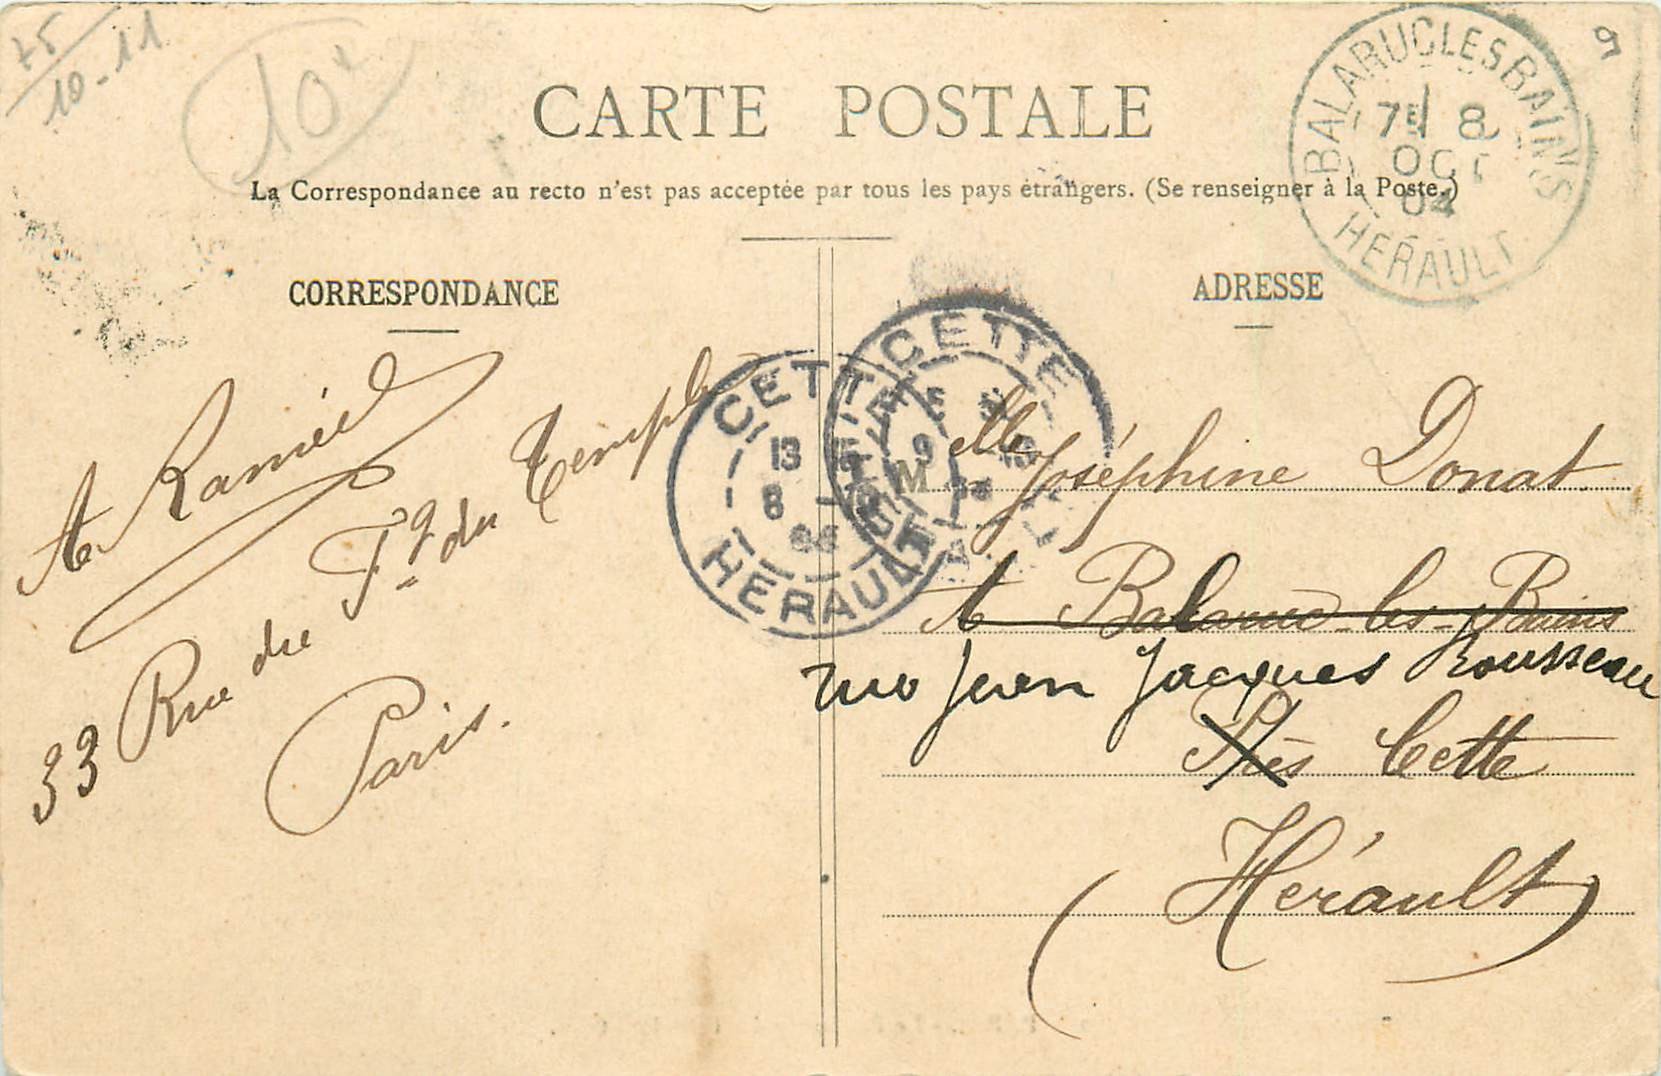 75
10-11
10
CARTE POSTALE
La Correspondance au recto n'est pas acceptée par tous les pays étrangers. (Se renseigner à la Poste.)
BALARUC LES BAINS
7E 8
OCT
04
HERAULT
CORRESPONDANCE
A Ramiel
33 Rue du Fg du Temple
Paris.
CETTE
13
8
HERAULT
CETTE
9
ADRESSE
Melle Joséphine Donat
A Balaruc-les-Bains
rue Jean Jacques Rousseau
Près Cette
Hérault